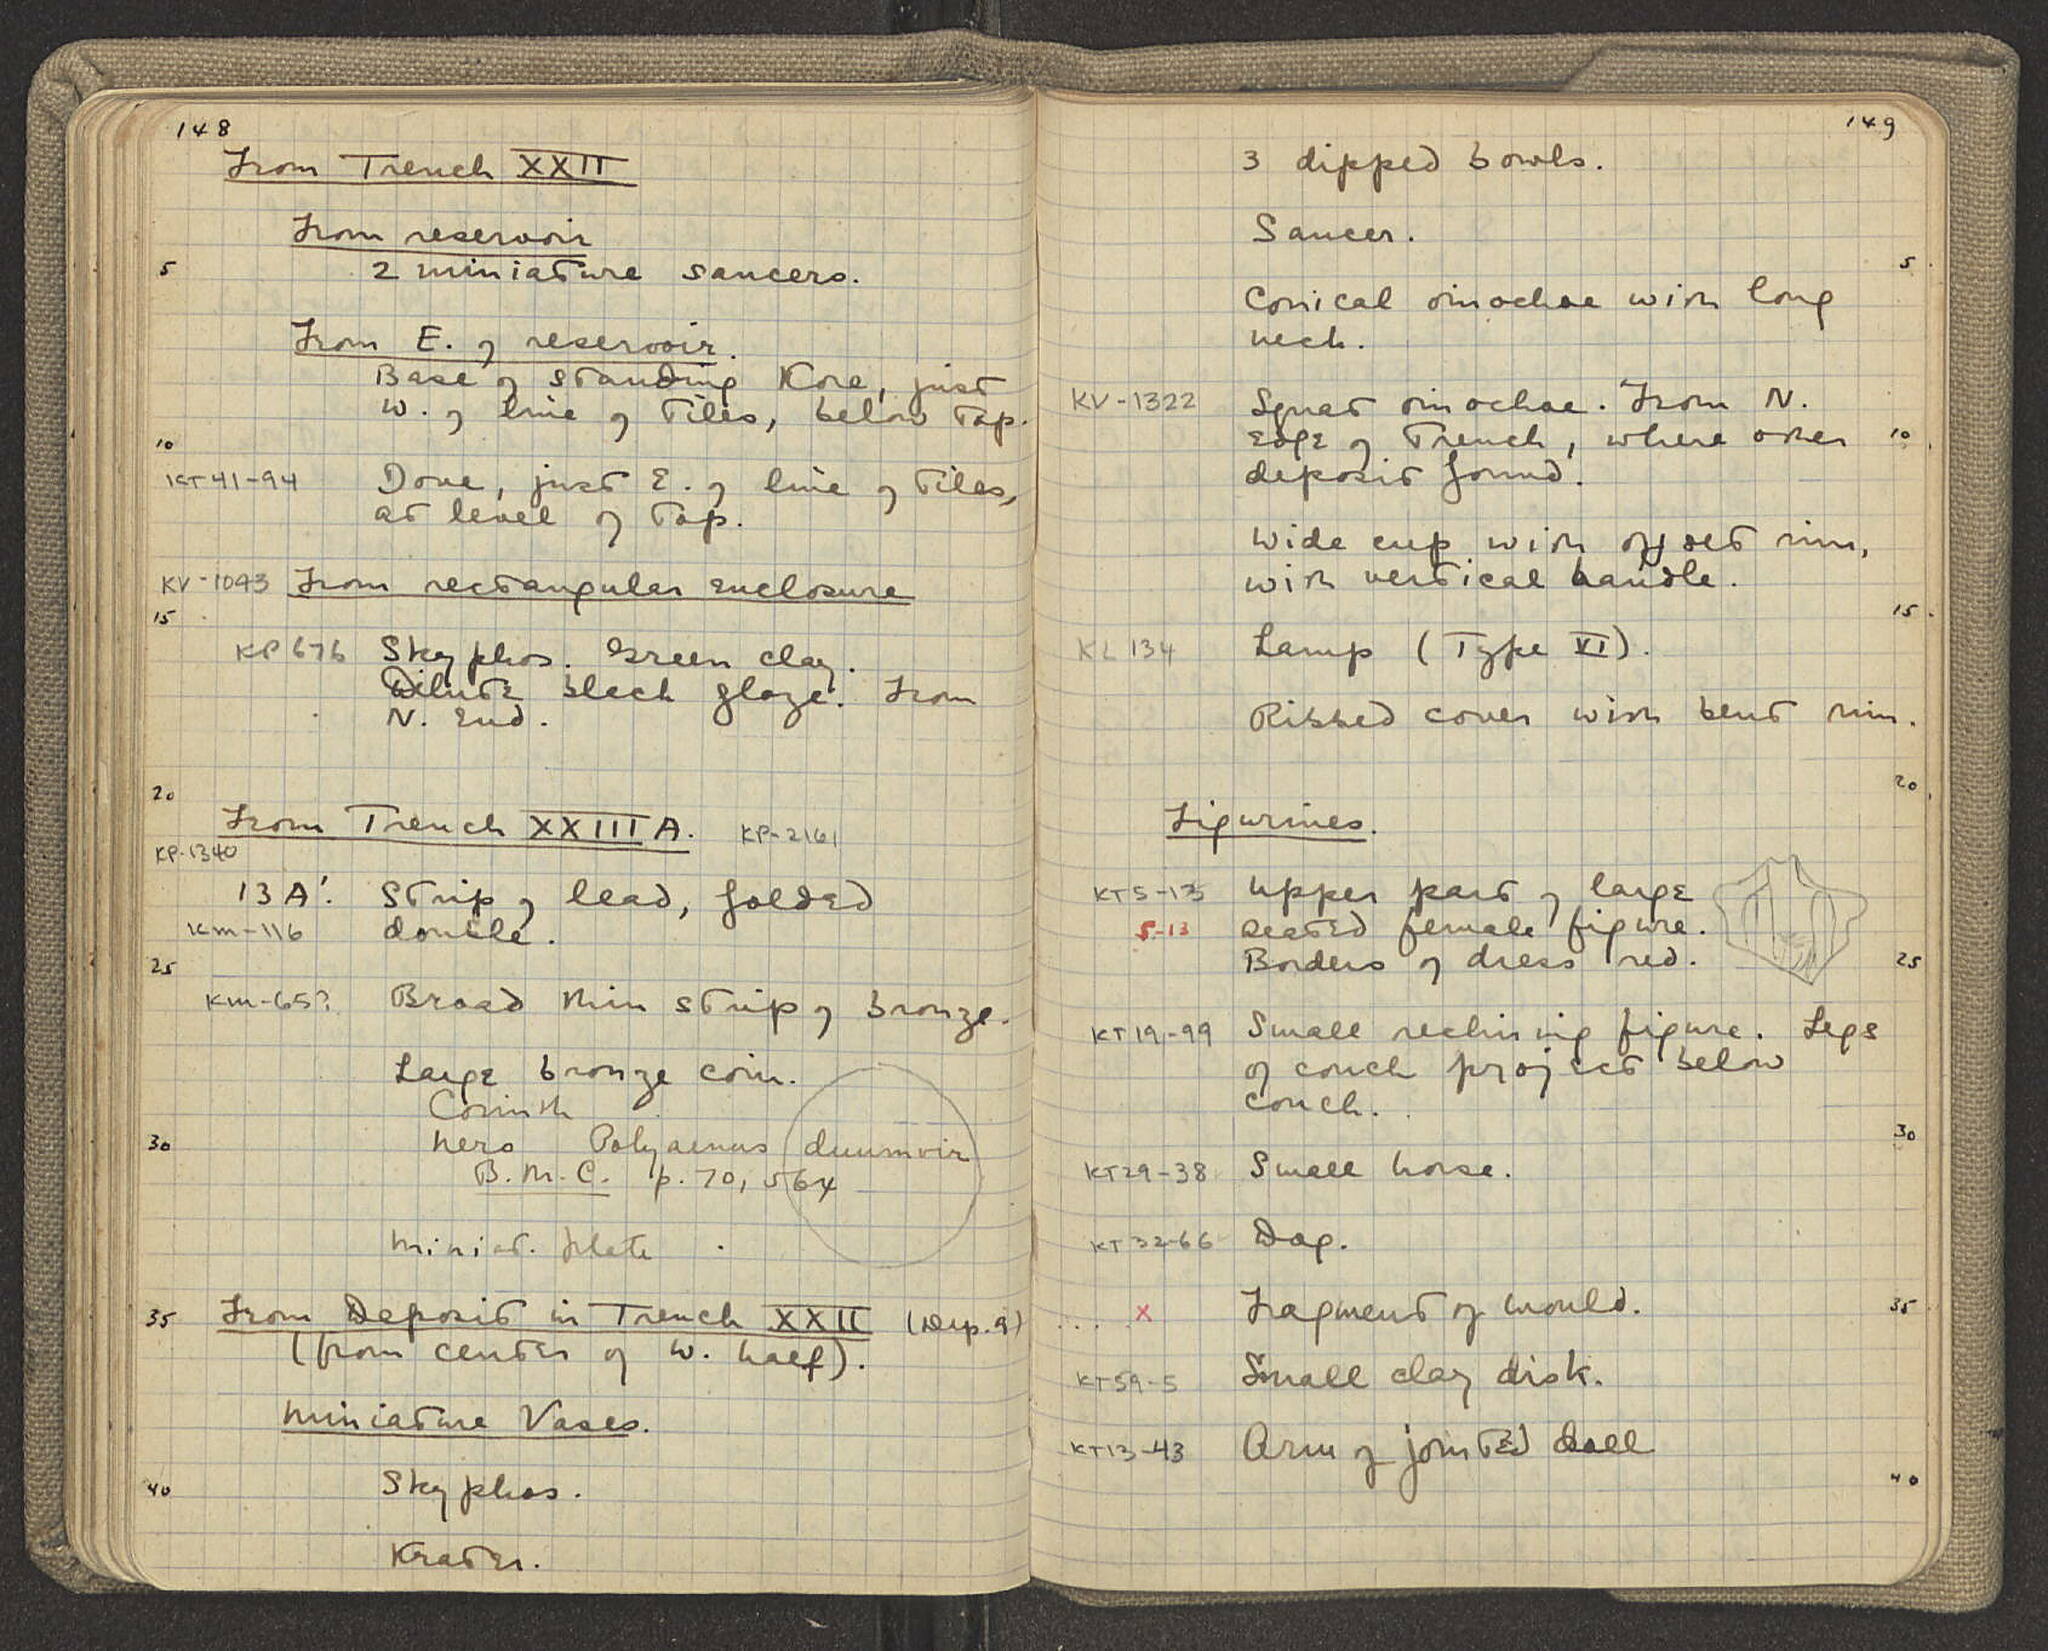 148
From Trench XXII
From reservoir
5
2 miniature saucers.
From E. of reservoir.
Base of standing Kore, just
W. of line of tiles, below top.
10
KT41-94 Dove, just E. of line of tiles,
at level of top.
KV-1093 From rectangular enclosure
15
KP676 Skyphos. Green clay.
Dilute black glaze. From
N. End.
20
From Trench XXIII A. KP-2161
KP-1340
13 A'. Strip of lead, folded
KM-116 double.
25
KM-65? Broad thin strip of bronze.
Large bronze coin.
Corinth
30 Nero Polyaenus duumvir
B.M.C. p. 70, 564
Miniat. plate .
35 From Deposit in Trench XXII (Dep. 9)
(from center of W. half).
Miniature Vases.
40 Skyphos.
Krater.
149
3 dipped bowls.
Saucer.
5
Conical oinochoe with long
neck.
KV-1322 Squat oinochoe. From N.
edge of Trench, where other 10
deposit found.
Wide cup with offset rim,
with vertical handle.
15
KL 134 Lamp (Type VI).
Ribbed cover with bent rim.
20
Figurines.
KT5-13 Upper part of large
5-13 seated female figure.
Borders of dress red. 25
KT19-99 Small reclining figure. Legs
of couch project below
couch.
30
KT29-38 Small horse.
KT 32-66 Dog.
.... x Fragment of mould. 35
KT59-5 Small clay disk.
KT13-43 Arm of jointed doll
40